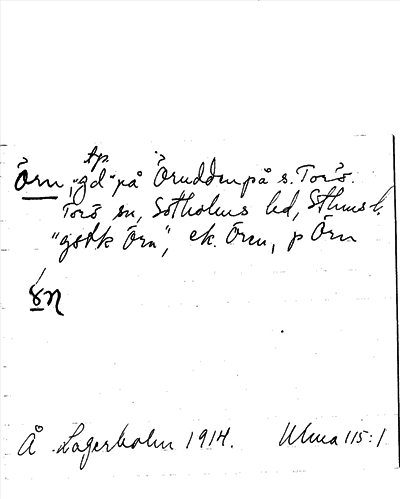 tp
Örn, "gd" på Örudden på s. Torö.
Torö sn, Sotholms hd, Sthms l.
"gstk Örn", ek. Örn, p Örn
Å Lagerholm 1914. Ulma 115:1